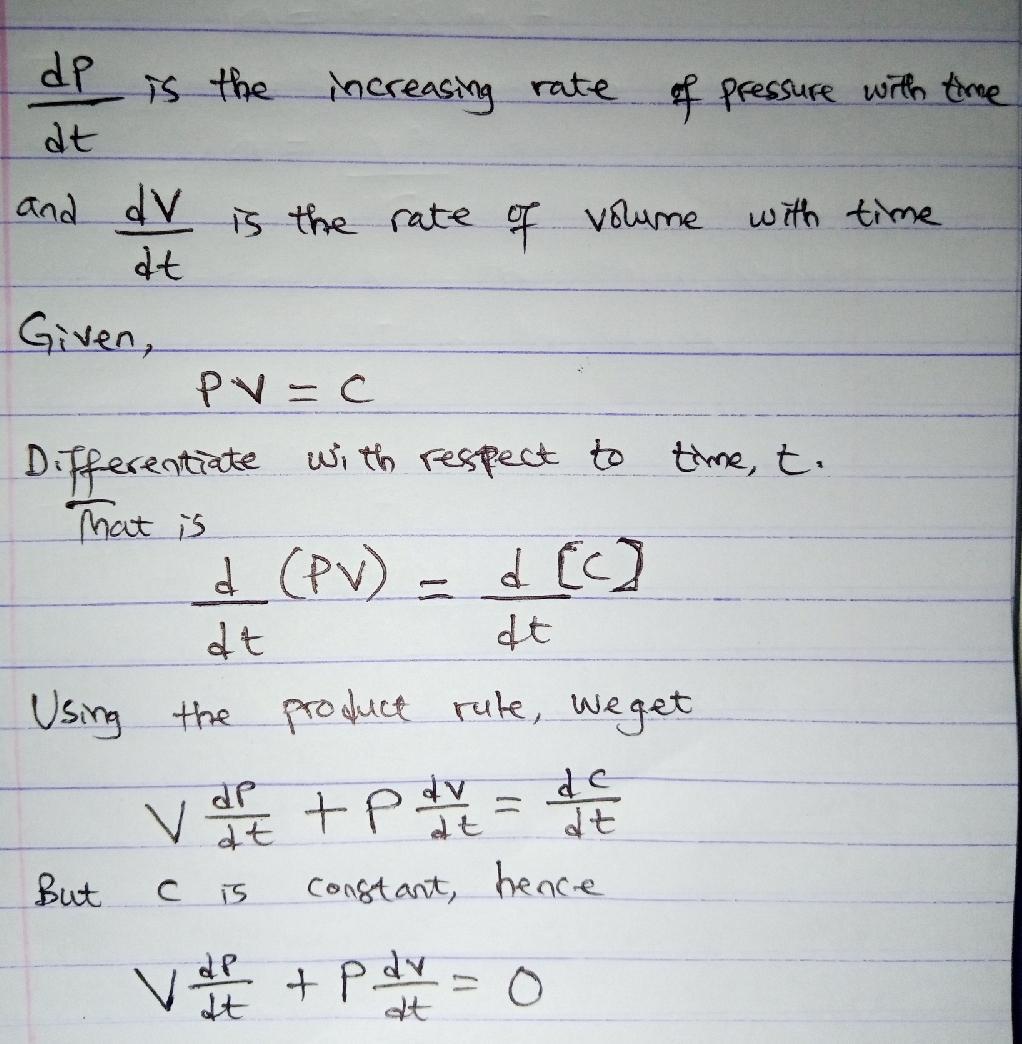 dP/dt is the increasing rate of pressure with time
and dV/dt is the rate of volume with time
Given,
PV = C
Differentiate with respect to time, t.
That is
d/dt (PV) = d/dt [C]
Using the product rule, we get
V dP/dt + P dv/dt = dc/dt
But c is constant, hence
V dP/dt + P dv/dt = 0